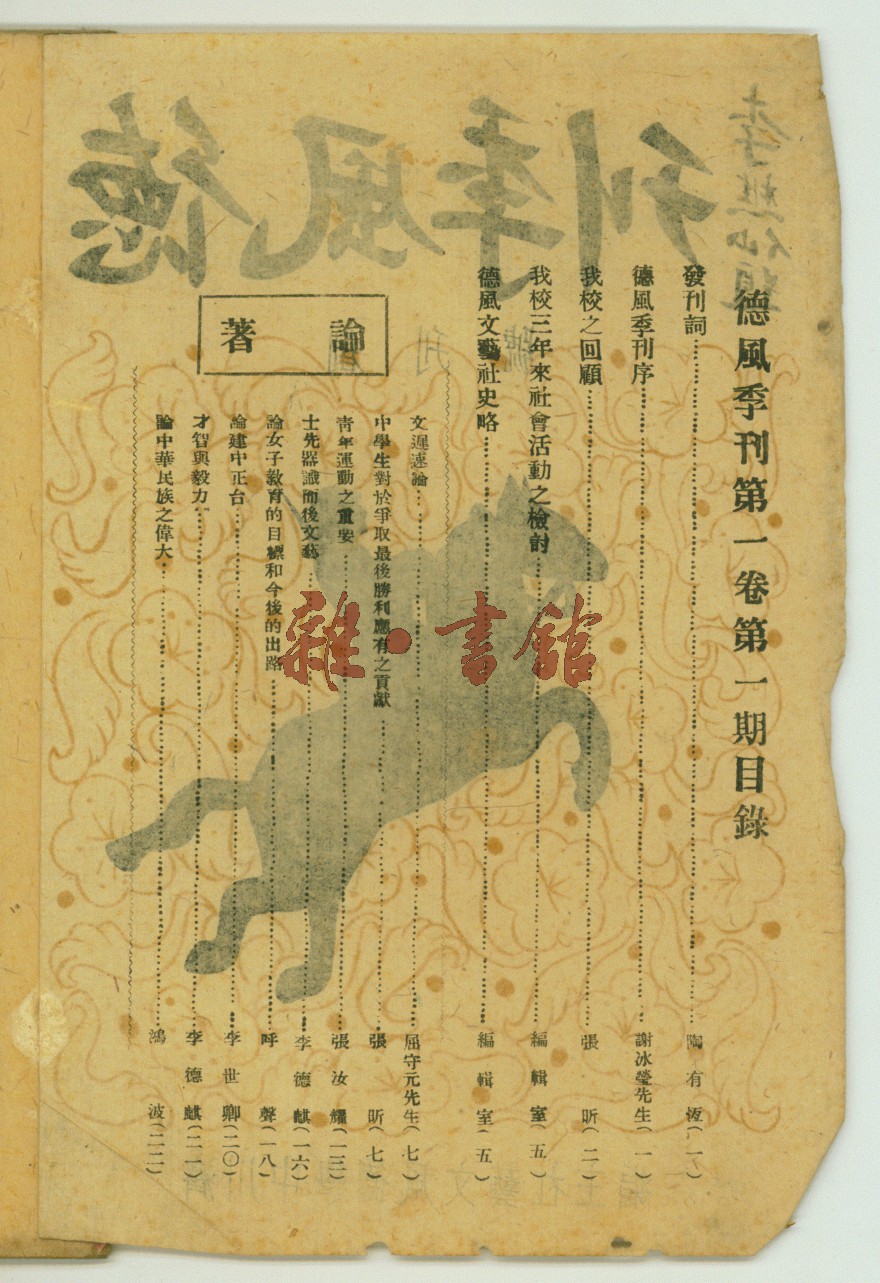 德風季刊第一卷第一期目錄
發刊詞……陶有恆(一)
德風季刊序……謝冰瑩先生(一)
我校之回顧……張昕(二)
我校三年來社會活動之檢討……編輯室(五)
德風文藝社史略……編輯室(五)
論著
文遲速論……屈守元先生(七)
中學生對於爭取最後勝利應有之貢獻……張昕(七)
青年運動之重要……張汝耀(一三)
士先器識而後文藝……李德麒(一六)
論女子教育的目標和今後的出路……呼聲(一八)
論建中正台……李世卿(二〇)
才智與毅力……李德麒(二一)
論中華民族之偉大……鴻波(二二)
德風季刊
雜·書館